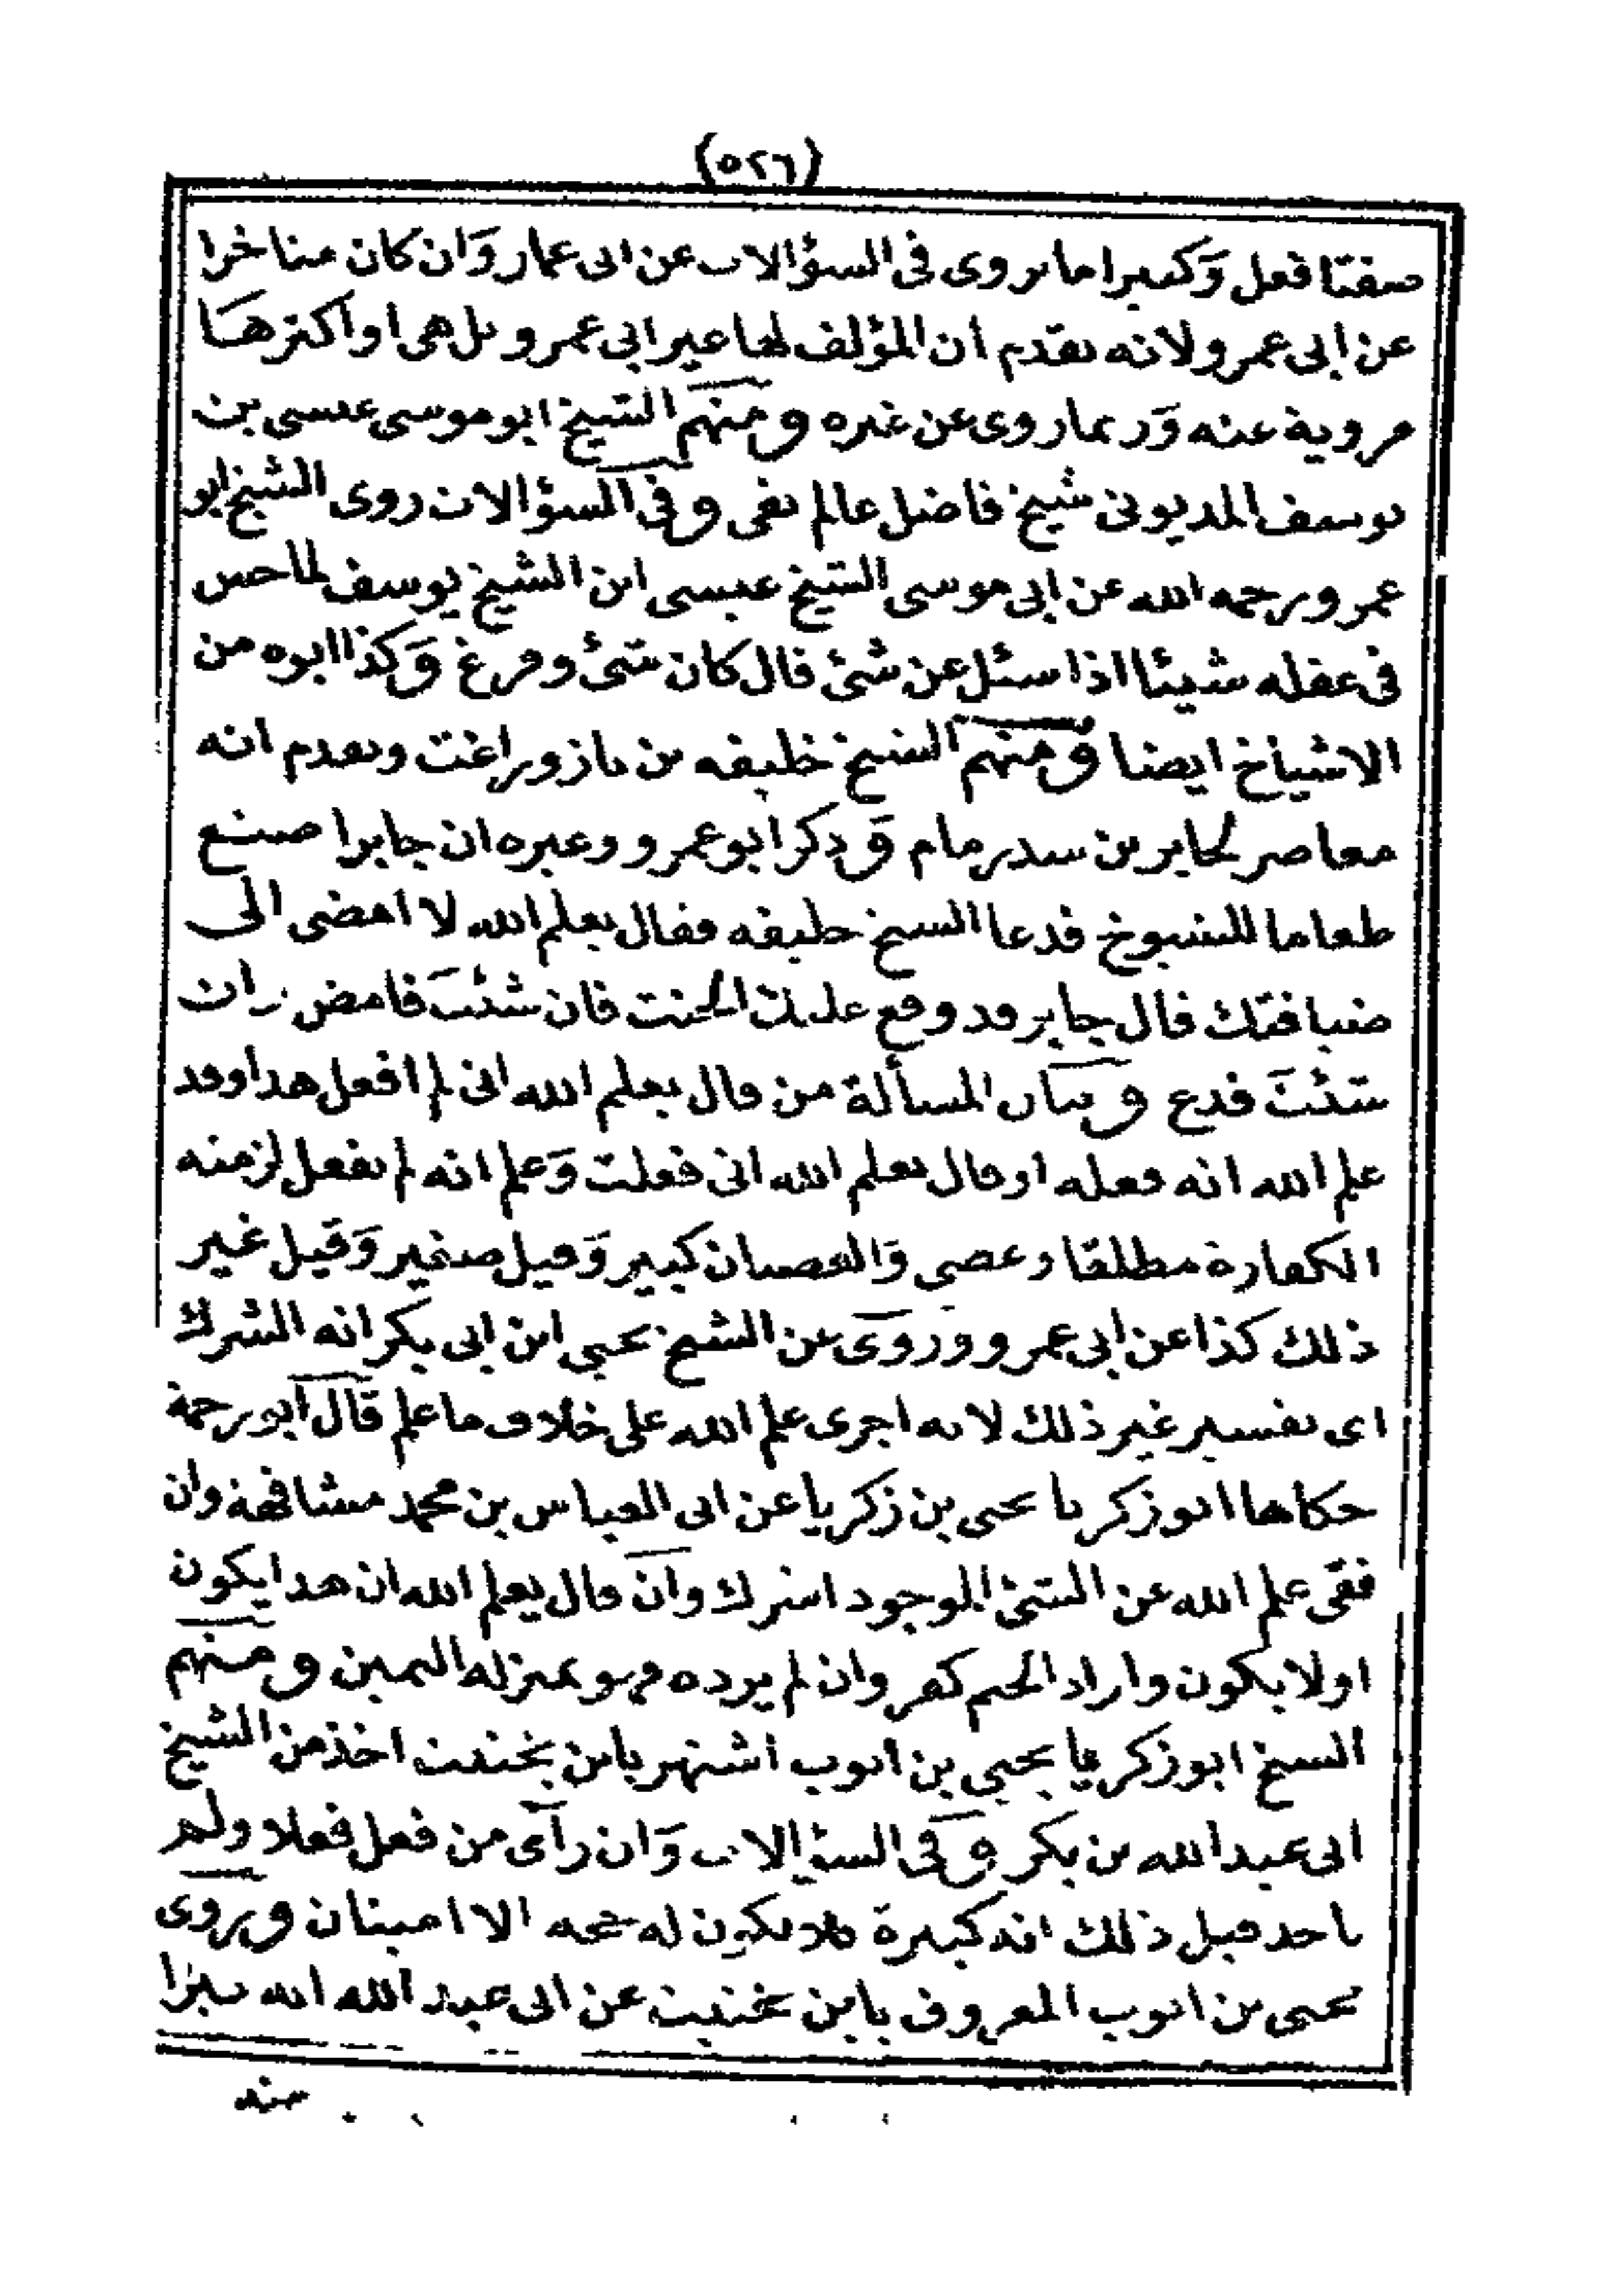 (٥٢٦)
صفتا فعل وكثيرا ما يروى فى السؤالات عن ابى عمار وان كان متاخرا
عن ابى عمرو لانه تقدم ان المؤلف لها غير ابى عمرو بل هى او اكثرها
مروية عنه وربما روى عن غيره ومنهم الشيخ ابو موسى عيسى بن
يوسف المديونى شيخ فاضل عالم تقى وفى السؤالات روى الشيخ ابو
عمرو رحمه الله عن ابى موسى الشيخ عيسى ابن الشيخ يوسف لما حس
فى عقله شيئا اذا سئل عن شئ قال كان شئ وفرغ وكذا ابوه من
الاشياخ ايضا ومنهم الشيخ خليفه بن يازوراغت وتقدم انه
معاصر لجابر بن سدرمام وذكر ابو عمرو وغيره ان جابرا صنع
طعاما للشيوخ فدعا الشيخ خليفه فقال يعلم الله لا امضى الى
ضيافتك فقال جابر قد وقع عليك الحنت فان شئت فامض وان
شئت فدع وبيان المسألة من قال يعلم الله انى لم افعل هذا وقد
علم الله انه فعله او قال يعلم الله انى فعلت وعلم انه لم يفعل لزمته
الكفارة مطلقا وعصى والعصيان كبير وقيل صغير وقيل غير
ذلك كذا عن ابى عمرو وروى عن الشيخ يحيى ابن ابى بكر انه الشرك
اى تفسير غير ذلك لانه اجرى علم الله على خلاف ما علم قال ابو رحمة
حكاها ابو زكريا يحيى بن زكريا عن ابى العباس بن محمد مشافهة وان
نفى علم الله عن الشئ الموجود اشرك وان قال يعلم الله ان هذا يكون
اولا يكون واراد الحتم كفر وان لم يرده فهو بمنزله اليمين ومنهم
الشيخ ابو زكريا يحيى بن ايوب اشتهر بابن يخنيت اخذ من الشيخ
ابى عبد الله بن بكر وفى السؤالات وان رآى من فعل فعلا ولم
ياخذ قبل ذلك انه كبيرة فلا يكون له حجه الا امينان وروى
يحيى بن ايوب المعروف بابن يخنيت عن ابى عبد الله انه يبرا
منه